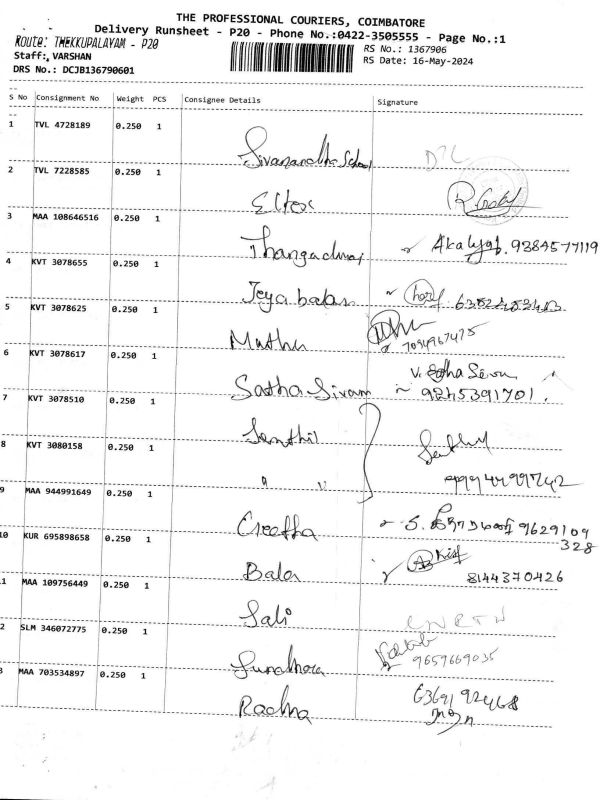 THE PROFESSIONAL COURIERS, COIMBATORE
Delivery Runsheet - P20 - Phone No.:0422-3505555 - Page No.:1
Route: THEKKUPALAYAM - P20
RS No.: 1367906
Staff:, VARSHAN
RS Date: 16-May-2024
DRS No.: DCJB136790601
S No Consignment No Weight PCS Consignee Details Signature
1 TVL 4728189 0.250 1
Sivanandha School
2 TVL 7228585 0.250 1
Eltex
3 MAA 108646516 0.250 1
Thangaduraj Akalya 9384577119
4 KVT 3078655 0.250 1
Jeya balan
5 KVT 3078625 0.250 1
Muthu 7094967475
6 KVT 3078617 0.250 1
Satha Sivam 9245391701.
7 KVT 3078510 0.250 1
Senthil
8 KVT 3080158 0.250 1
" "
9 MAA 944991649 0.250 1
Creetha 9629109
328
10 KUR 695898658 0.250 1
Bala 8144370426
1 MAA 109756449 0.250 1
Sali
2 SLM 346072775 0.250 1
9659669035
3 MAA 703534897 0.250 1
Radha 6369192468